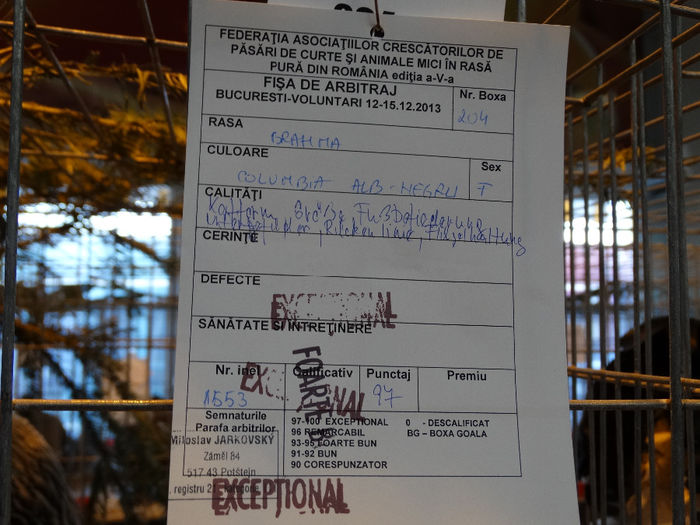 FEDERAȚIA ASOCIAȚIILOR CRESCĂTORILOR DE
PĂSĂRI DE CURTE ȘI ANIMALE MICI ÎN RASĂ
PURĂ DIN ROMÂNIA ediția a-V-a
FIȘA DE ARBITRAJ
BUCURESTI-VOLUNTARI 12-15.12.2013
Nr. Boxa
204
RASA
BRAHMA
CULOARE
COLUMBIA ALB-NEGRU
Sex
T
CALITĂȚI
Fußbefiederung
Rückenlinie, Flügelhaltung
CERINȚE
DEFECTE
EXCEPȚIONAL
SĂNĂTATE SI ÎNTREȚINERE
Nr. inel
Calificativ
Punctaj
Premiu
1553
97
FOARTE B
Semnaturile
Parafa arbitrilor
97-100 EXCEPTIONAL
96 REMARCABIL
93-95 FOARTE BUN
91-92 BUN
90 CORESPUNZATOR
0 - DESCALIFICAT
BG – BOXA GOALA
Miloslav JARKOVSKÝ
Záměl 84
517 43 Potštejn
EXCEPȚIONAL